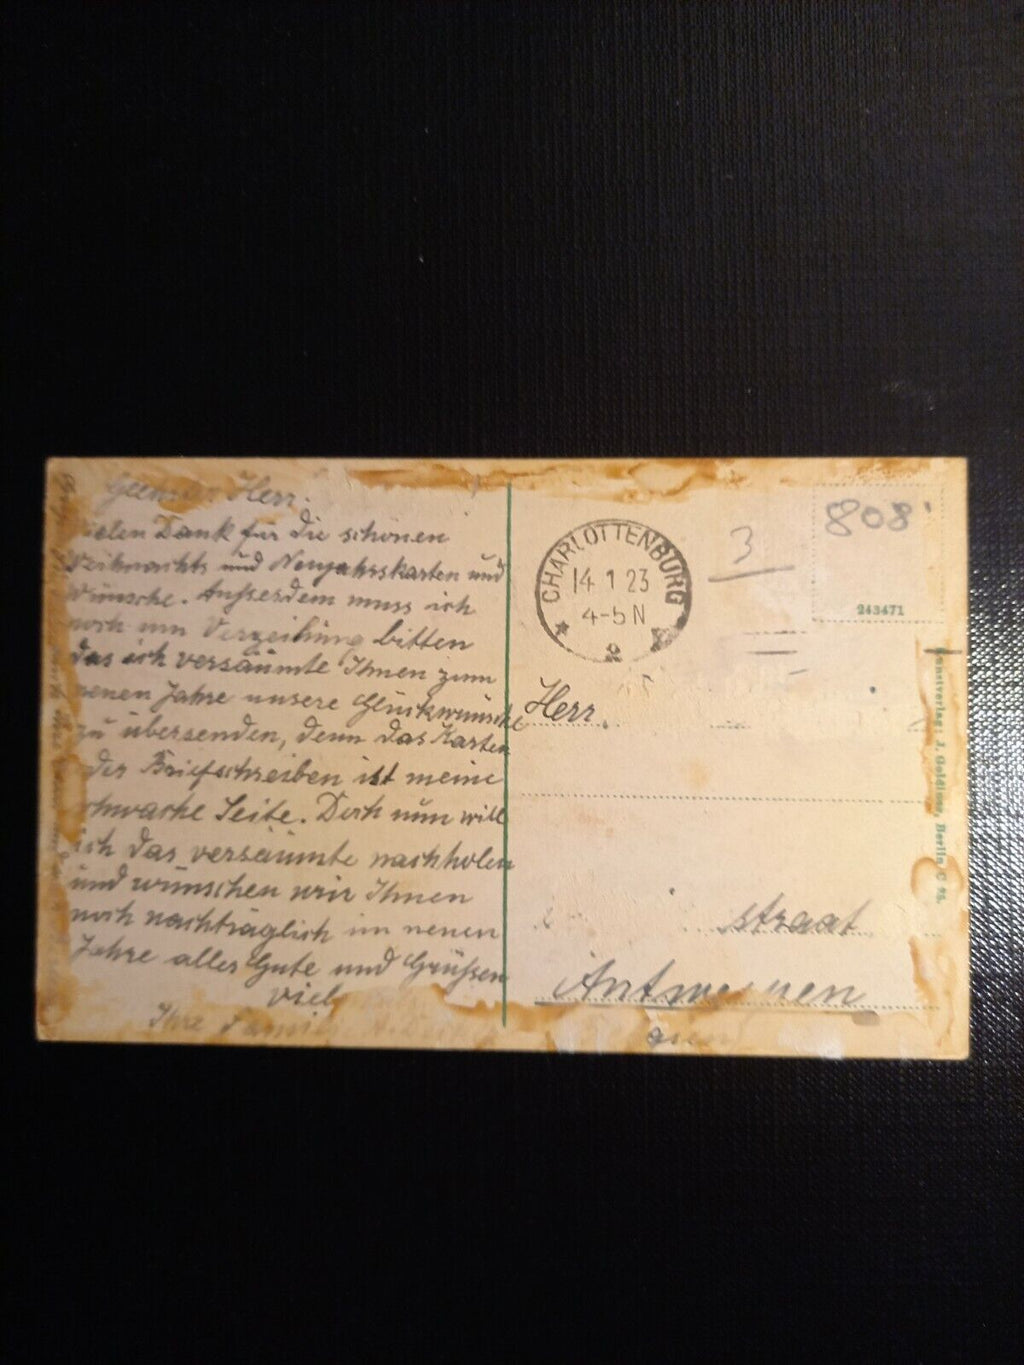 Herr.
Vielen Dank für die schönen
Weihnachts und Neujahrskarten und
Wünsche. Ausserdem muss ich
noch um Verzeihung bitten
das ich versäumte Ihnen zum
neuen Jahre unsere Glückwünsche
zu übersenden, denn das Karten
oder Briefschreiben ist meine
schwache Seite. Doch nun will
ich das versäumte nachholen
und wünschen wir Ihnen
noch nachträglich im neuen
Jahre alles Gute und Grüssen
viel
Ihre Famili
CHARLOTTENBURG
14 1 23
4-5 N
2
3
808
243471
Herr
straat
Antwerpen
Kunstverlag: J. Goldiner, Berlin C 25.